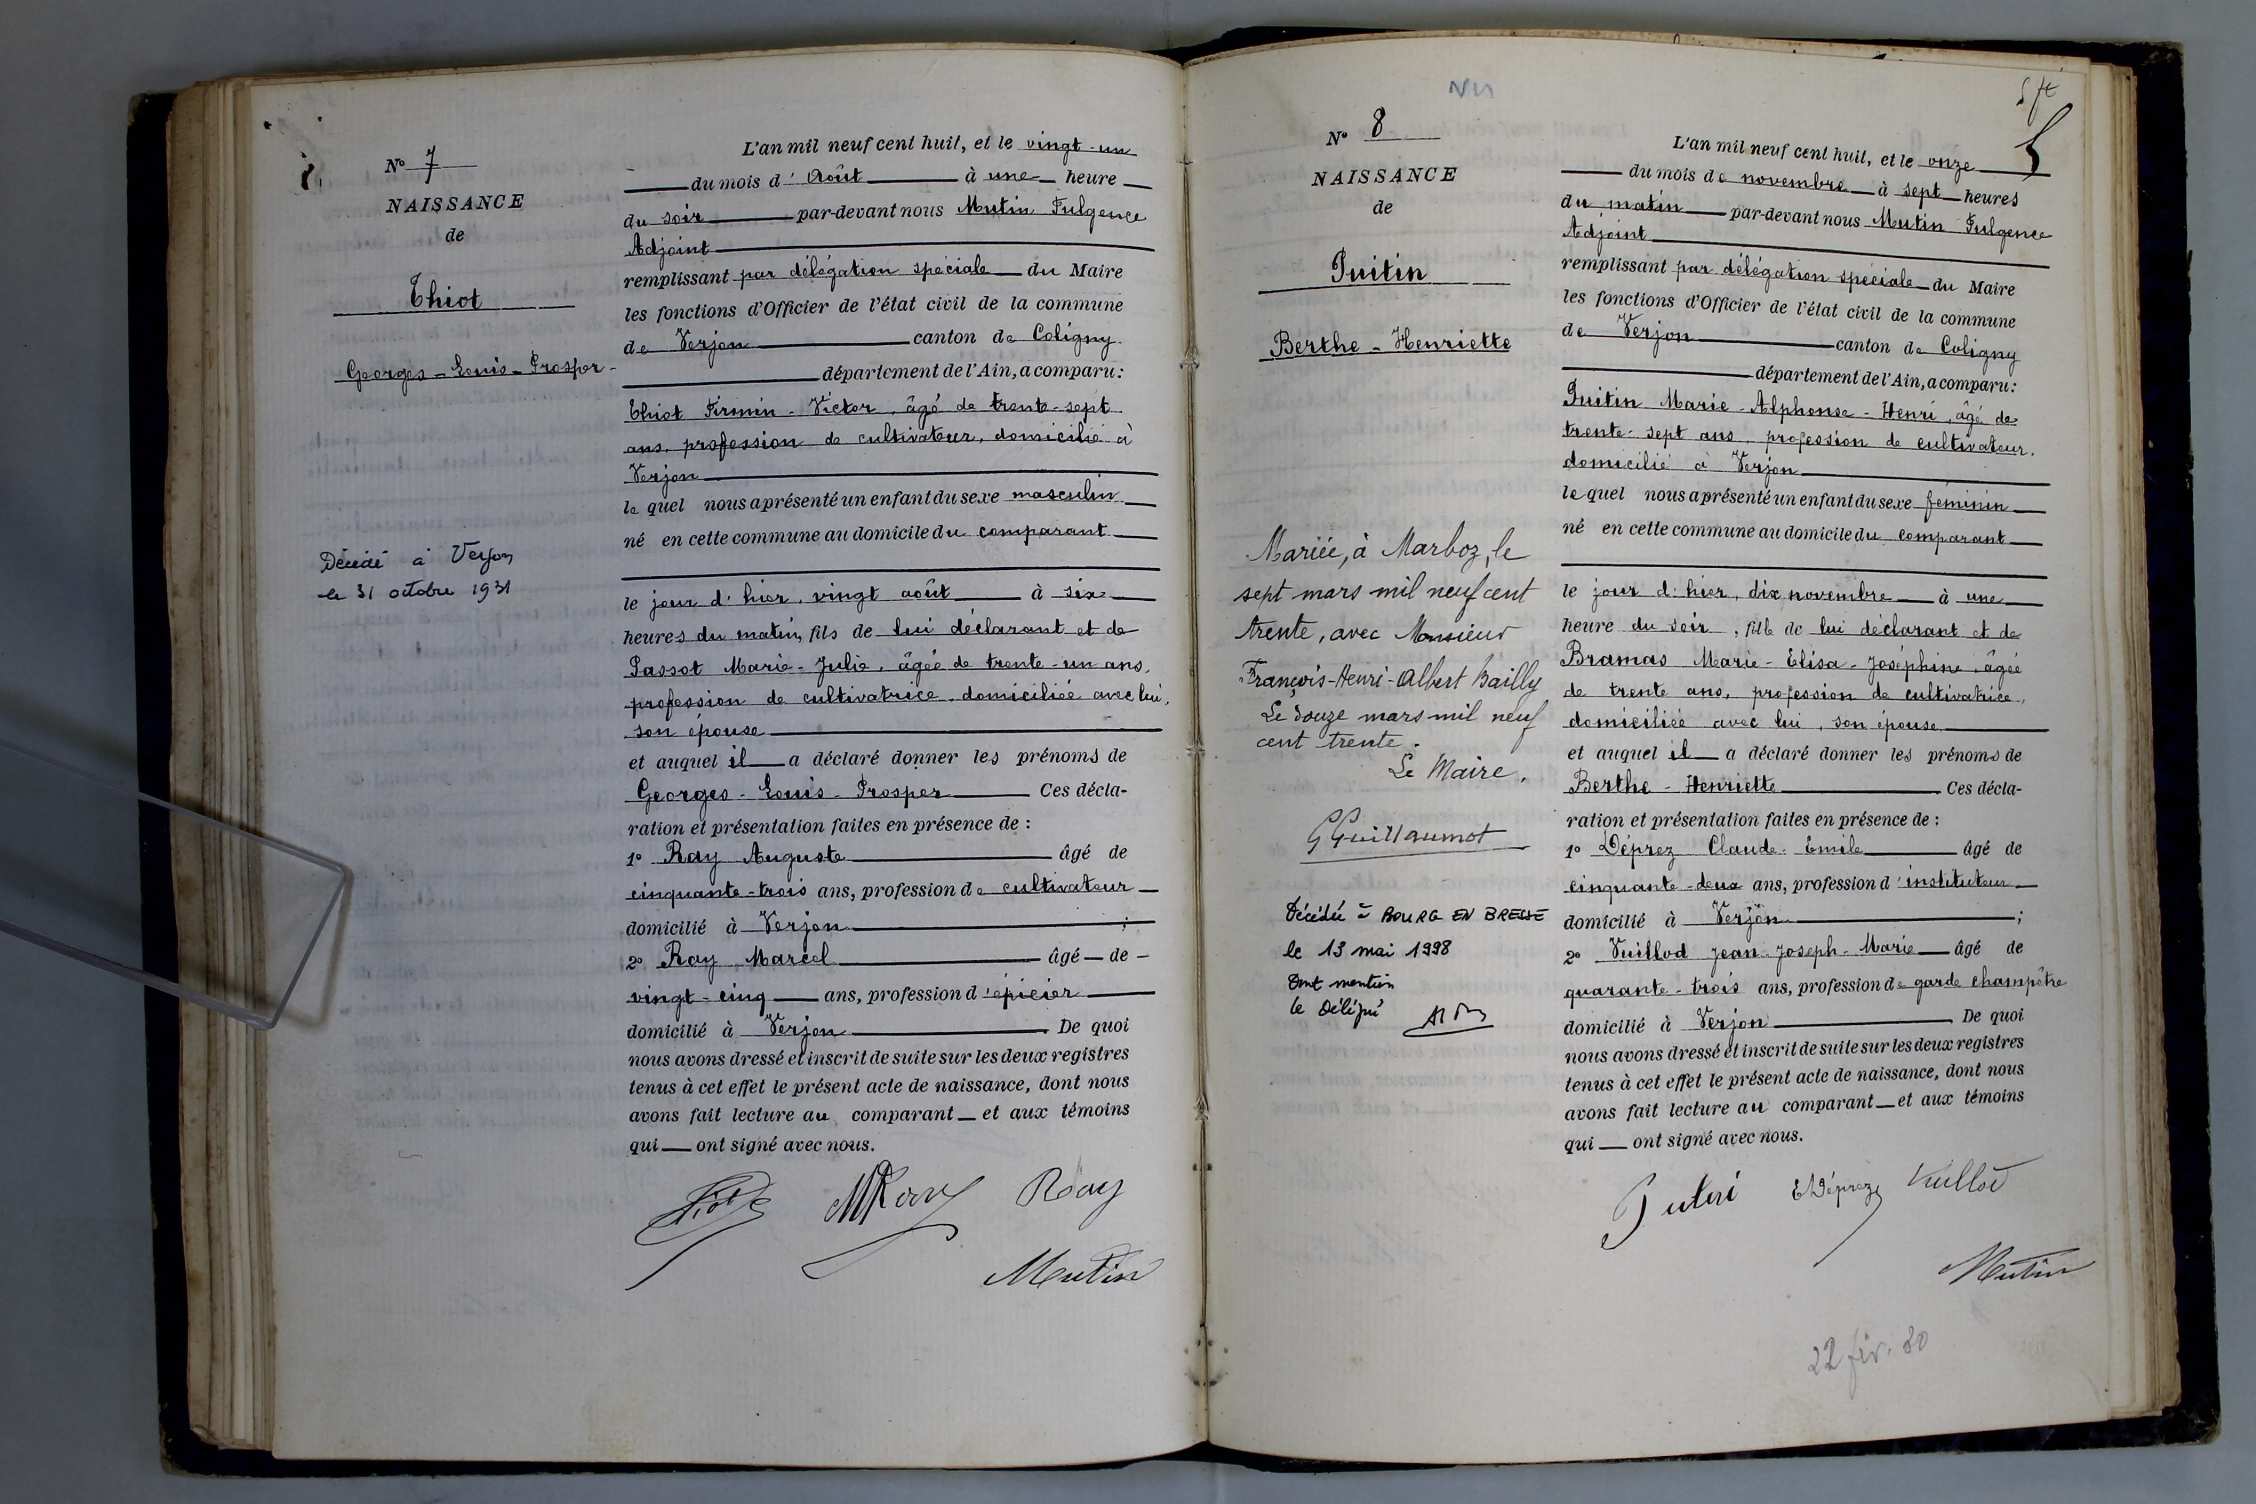 N° 7
NAISSANCE
de
Thiot
Georges - Louis - Prosper -
Décédé à Verjon
le 31 octobre 1931
L'an mil neuf cent huit, et le vingt-un
du mois d'Août à une heure
du soir par-devant nous Mutin Fulgence
Adjoint
remplissant par délégation spéciale du Maire
les fonctions d'Officier de l'état civil de la commune
de Verjon canton de Coligny
département de l'Ain, a comparu :
Thiot Firmin - Victor, âgé de trente-sept
ans, profession de cultivateur, domicilié à
Verjon
lequel nous a présenté un enfant du sexe masculin
né en cette commune au domicile du comparant
le jour d'hier, vingt août à six
heures du matin, fils de lui déclarant et de
Passot Marie - Julie, âgée de trente-un ans,
profession de cultivatrice, domiciliée avec lui,
son épouse
et auquel il a déclaré donner les prénoms de
Georges - Louis - Prosper Ces décla-
ration et présentation faites en présence de :
1° Ray Auguste âgé de
cinquante-trois ans, profession de cultivateur
domicilié à Verjon ;
2° Ray Marcel âgé de
vingt-cinq ans, profession d'épicier
domicilié à Verjon De quoi
nous avons dressé et inscrit de suite sur les deux registres
tenus à cet effet le présent acte de naissance, dont nous
avons fait lecture au comparant et aux témoins
qui ont signé avec nous.
MRay Ray
Mutin
N° 8
NAISSANCE
de
Puitin
Berthe - Henriette
Mariée, à Marboz, le
sept mars mil neuf cent
trente, avec Monsieur
François-Henri-Albert Bailly
Le douze mars mil neuf
cent trente.
Le Maire,
GGuillaumot
Décédée à BOURG EN BRESSE
le 13 mai 1998
Dont mention
le Délégué
5
L'an mil neuf cent huit, et le onze
du mois de novembre à sept heures
du matin par-devant nous Mutin Fulgence
Adjoint
remplissant par délégation spéciale du Maire
les fonctions d'Officier de l'état civil de la commune
de Verjon canton de Coligny
département de l'Ain, a comparu :
Puitin Marie - Alphonse - Henri, âgé de
trente-sept ans, profession de cultivateur,
domicilié à Verjon
lequel nous a présenté un enfant du sexe féminin
né en cette commune au domicile du comparant
le jour d'hier, dix novembre à une
heure du soir, fille de lui déclarant et de
Bramas Marie - Elisa - Joséphine, âgée
de trente ans, profession de cultivatrice,
domiciliée avec lui, son épouse
et auquel il a déclaré donner les prénoms de
Berthe - Henriette Ces décla-
ration et présentation faites en présence de :
1° Déprez Claude - Emile âgé de
cinquante-deux ans, profession d'instituteur
domicilié à Verjon ;
2° Vuillod Jean - Joseph - Marie âgé de
quarante-trois ans, profession de garde champêtre
domicilié à Verjon De quoi
nous avons dressé et inscrit de suite sur les deux registres
tenus à cet effet le présent acte de naissance, dont nous
avons fait lecture au comparant et aux témoins
qui ont signé avec nous.
EDéprez Vuillod
Mutin